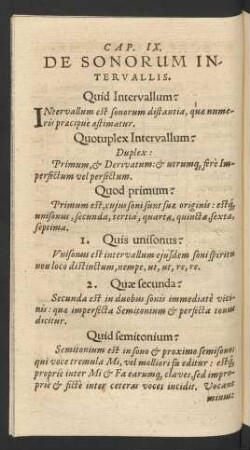 CAP. IX.
DE SONORUM IN-
TERVALLIS.
Quid Intervallum?
INtervallum est sonorum distantia, quæ nume-
ris præcipuè æstimatur.
Quotuplex Intervallum?
Duplex:
Primum, & Derivatum: & utrumq; ferè Im-
perfectum vel perfectum.
Quod primum?
Primum est, cujus soni sunt suæ originis: estq;
unisonus, secunda, tertia, quarta, quinta, sexta,
septima.
1. Quis unisonus?
Unisonus est intervallum ejusdem soni spiritu
non loco distinctum, nempe, ut, ut, re, re.
2. Quæ secunda?
Secunda est in duobus sonis immediatè vici-
nis: quæ imperfecta Semitonium & perfecta tonus
dicitur.
Quid semitonium?
Semitonium est in sono & proximo semisono:
qui voce tremula Mi, vel molliori fu editur: estq;
propriè inter Mi & Fa earumq; claves, sed impro-
priè & fictè inter ceteras voces incidit. Vocant
minus: